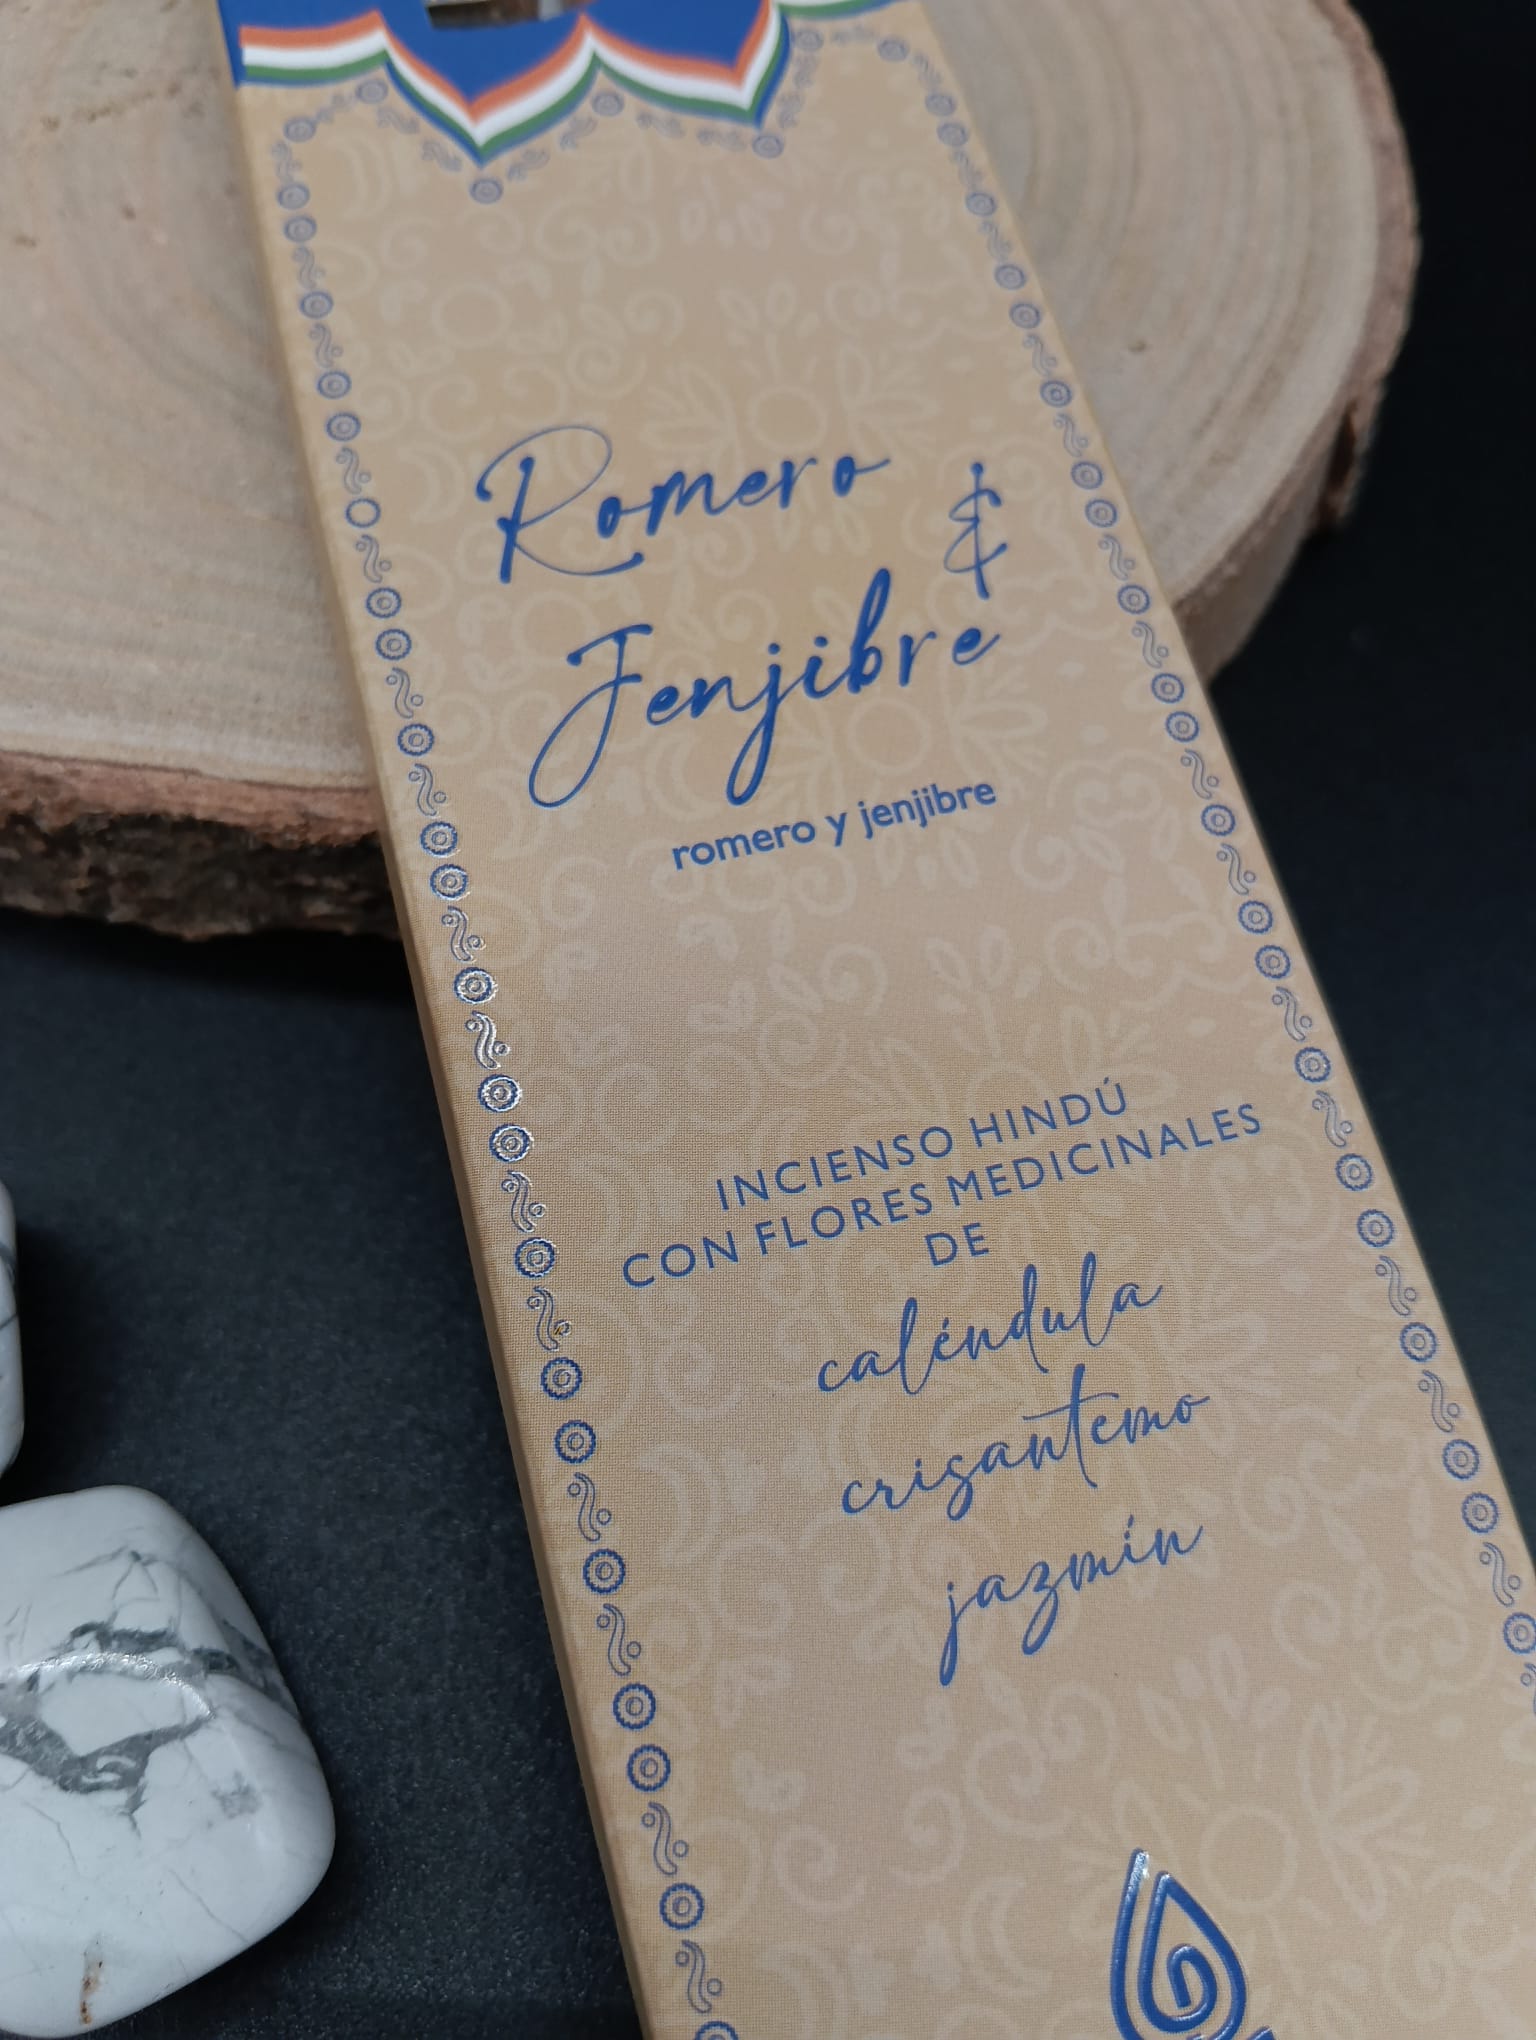 Romero
&
Jenjibre
romero y jenjibre
INCIENSO HINDÚ
CON FLORES MEDICINALES
DE
caléndula
crisantemo
jazmín